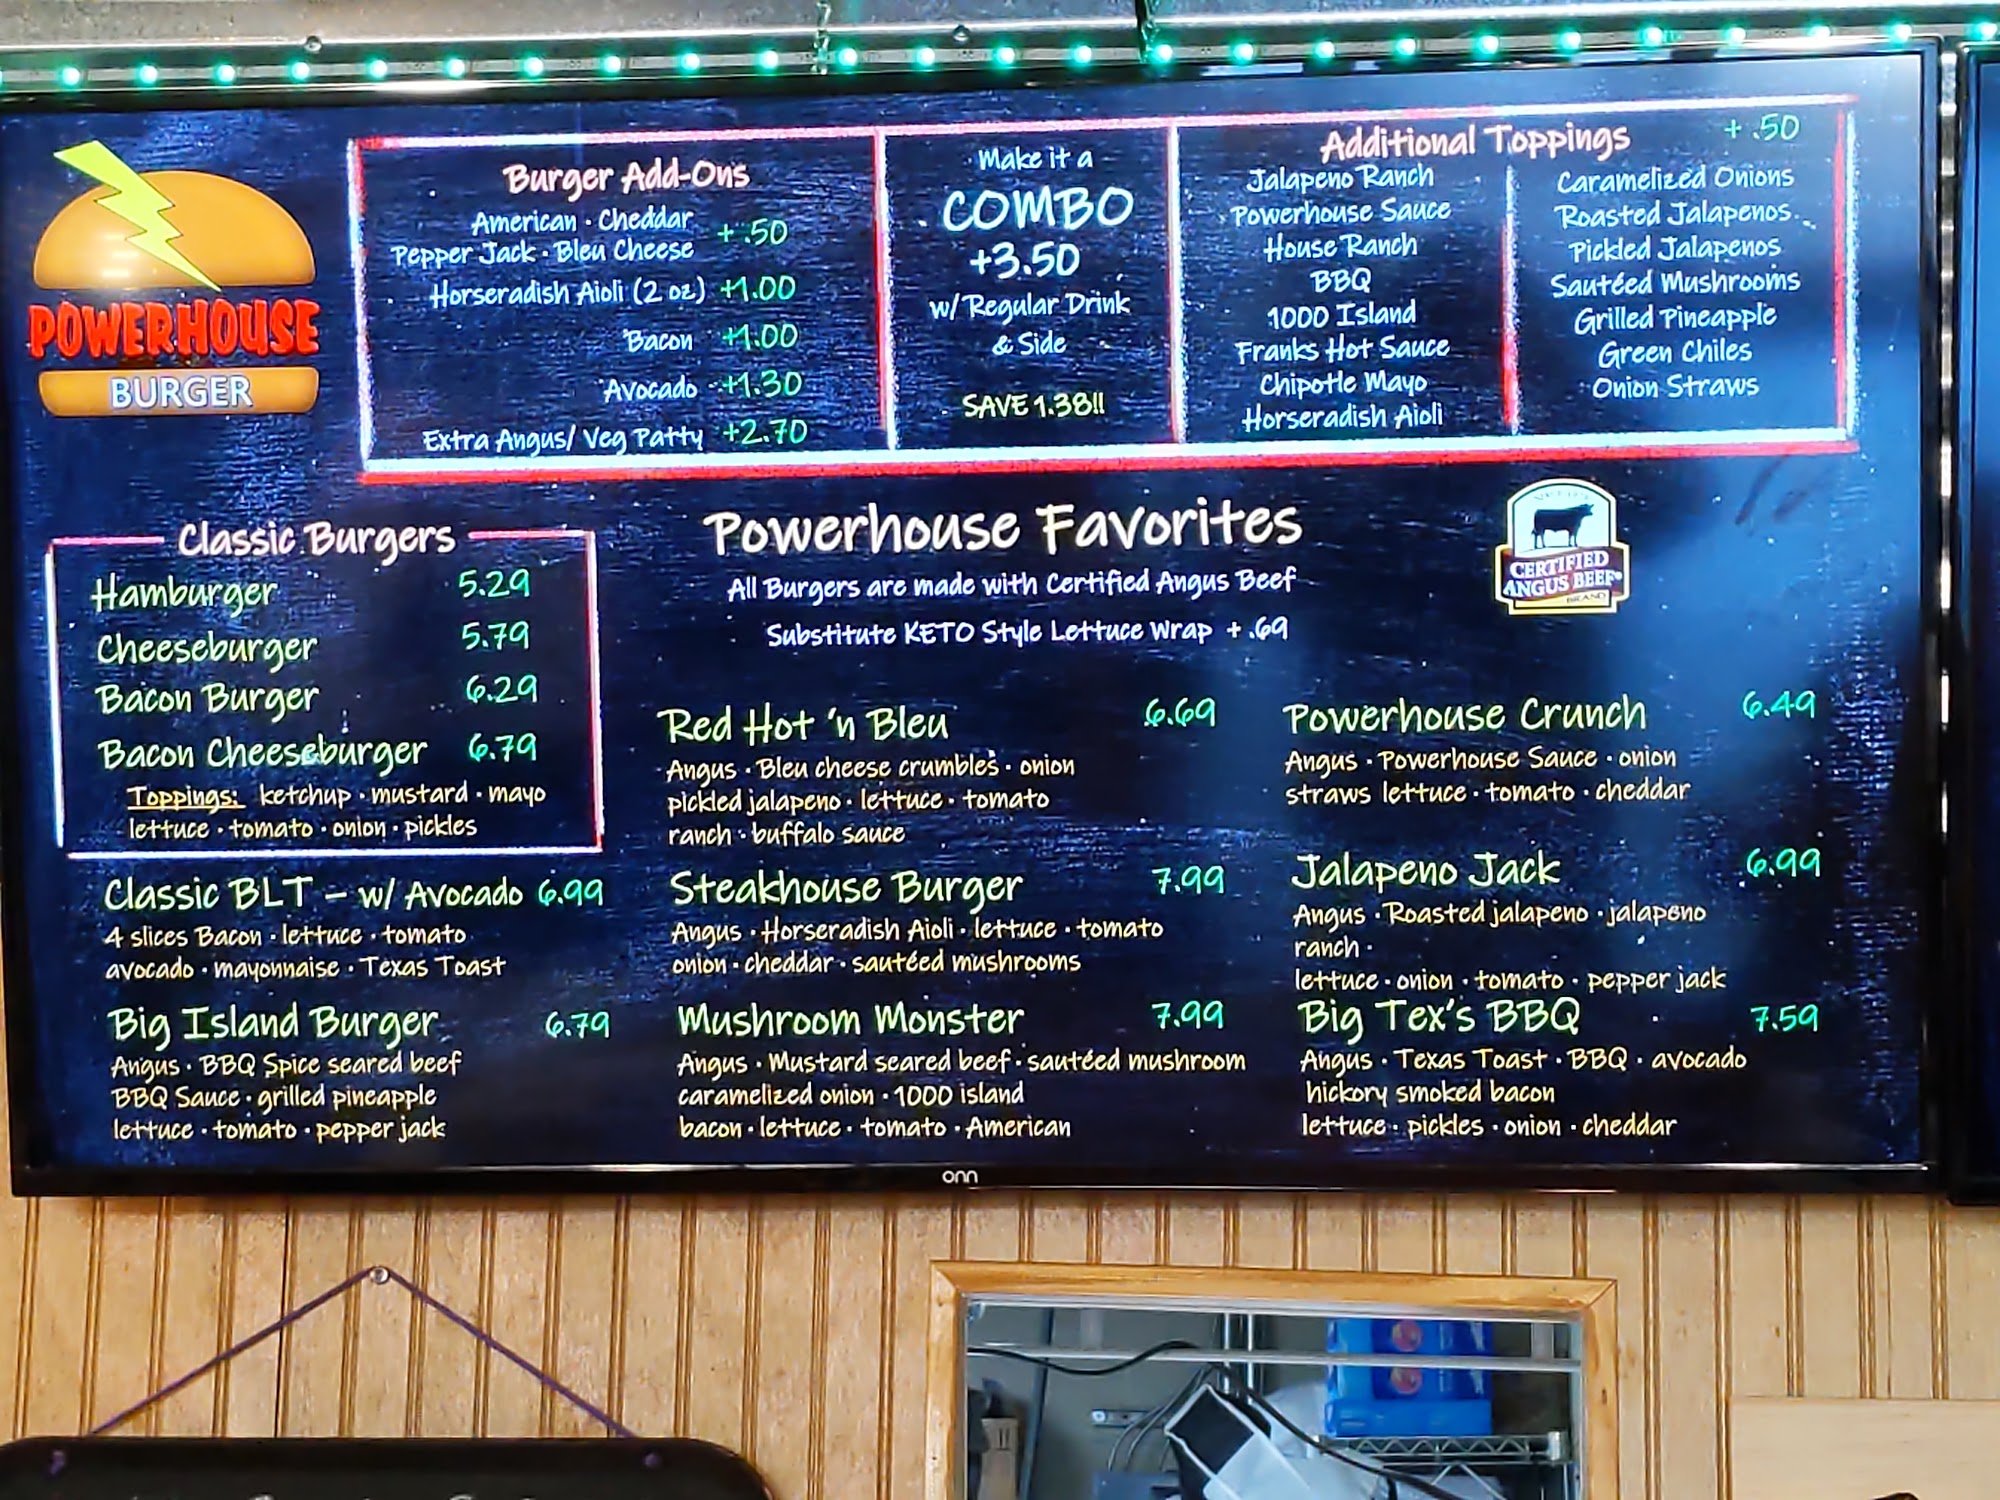 POWERHOUSE
BURGER
Burger Add-Ons
American · Cheddar
Pepper Jack · Bleu Cheese + .50
Horseradish Aioli (2 oz) +1.00
Bacon +1.00
Avocado +1.30
Extra Angus/ Veg Patty +2.70
Make it a
COMBO
+3.50
w/ Regular Drink
& Side
SAVE 1.38!!
Additional Toppings + .50
Jalapeno Ranch
Powerhouse Sauce
House Ranch
BBQ
1000 Island
Franks Hot Sauce
Chipotle Mayo
Horseradish Aioli
Caramelized Onions
Roasted Jalapenos
Pickled Jalapenos
Sautéed Mushrooms
Grilled Pineapple
Green Chiles
Onion Straws
Classic Burgers
Hamburger 5.29
Cheeseburger 5.79
Bacon Burger 6.29
Bacon Cheeseburger 6.79
Toppings: ketchup · mustard · mayo
lettuce · tomato · onion · pickles
Classic BLT – w/ Avocado 6.99
4 slices Bacon · lettuce · tomato
avocado · mayonnaise · Texas Toast
Big Island Burger 6.79
Angus · BBQ Spice seared beef
BBQ Sauce · grilled pineapple
lettuce · tomato · pepper jack
Powerhouse Favorites
All Burgers are made with Certified Angus Beef
Substitute KETO Style Lettuce Wrap + .69
CERTIFIED
ANGUS BEEF®
BRAND
Red Hot 'n Bleu 6.69
Angus · Bleu cheese crumbles · onion
pickled jalapeno · lettuce · tomato
ranch · buffalo sauce
Steakhouse Burger 7.99
Angus · Horseradish Aioli · lettuce · tomato
onion · cheddar · sautéed mushrooms
Mushroom Monster 7.99
Angus · Mustard seared beef · sautéed mushroom
caramelized onion · 1000 island
bacon · lettuce · tomato · American
Powerhouse Crunch 6.49
Angus · Powerhouse Sauce · onion
straws lettuce · tomato · cheddar
Jalapeno Jack 6.99
Angus · Roasted jalapeno · jalapeno
ranch ·
lettuce · onion · tomato · pepper jack
Big Tex's BBQ 7.59
Angus · Texas Toast · BBQ · avocado
hickory smoked bacon
lettuce · pickles · onion · cheddar
onn